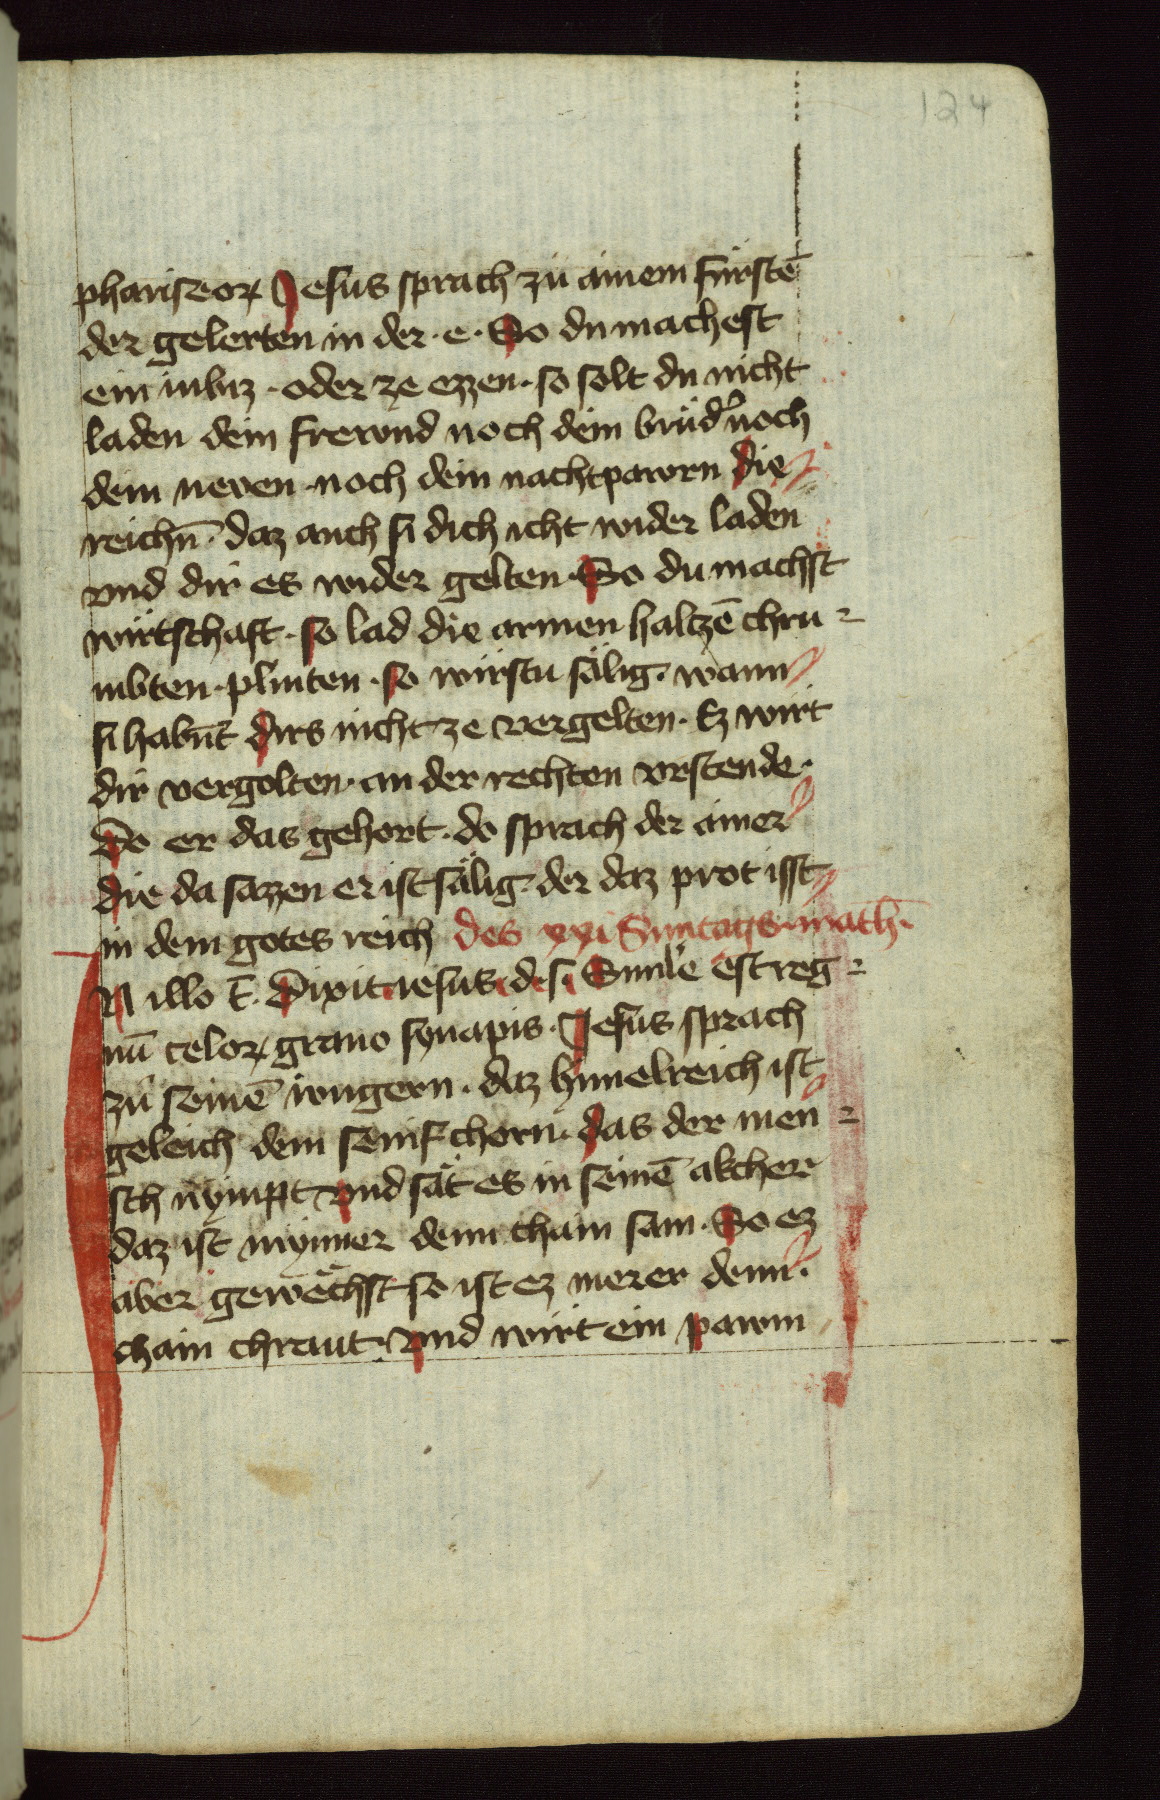 124
phariseoꝝ Jesus sprach zu ainem fürstē
der gelerten in der · e · So du machest
ein inbiz · oder ze ezzen · so solt du nicht
laden dein frewnd noch dein brüdˀ noch
dein neven · noch dein nachtpawrn die
reichn̄ · daz auch si dich icht wider laden
vnd dir es wider gelten · So du machst
wirtschaft · so lad die armen haltzē chru
mbten · plinten · so wirstu sälig · wann
si habnt dirs nicht ze vergelten · Ez wirt
dir vergolten · an der rechten vrstende ·
Do er das gehort · do sprach der ainer
die da sazzen er ist sälig · der daz prot isst
in dem gotes reich des xxi Suntags · math̄ ·
IN illo t̄ · Dixit iesus d · s · Simile est reg
nū celoꝝ grano synapis · Jesus sprach
zu seinē iungern · daz hymelreich ist
geleich dem senifchorn · das der men
sch nympt vnd sät es in seinē akcher
daz ist mynner denn chain sam · So ez
aber gewechst so ist ez merer denn ·
chain chraut · vnd wirt ein pawm